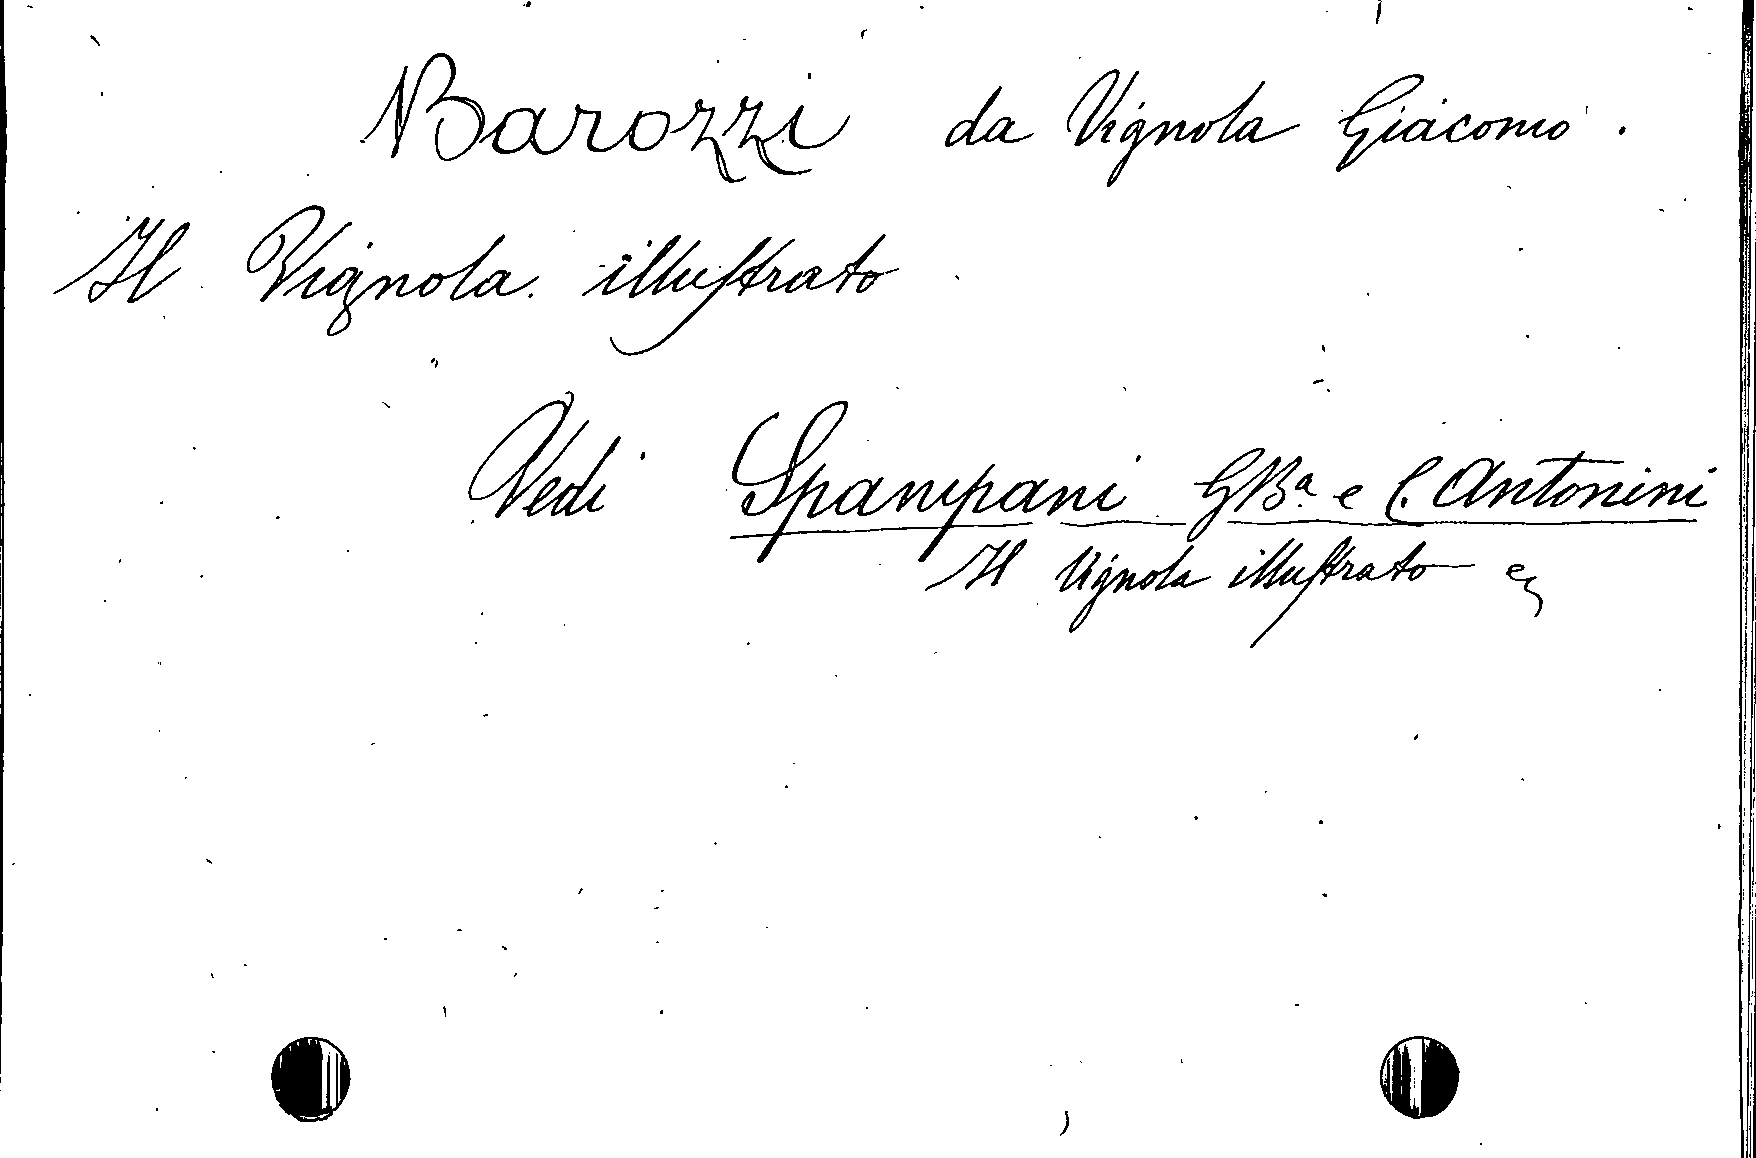 Barozzi da Vignola Giacomo.
Il Vignola illustrato
Vedi Spampani GBa. e C. Antonini
Il Vignola illustrato